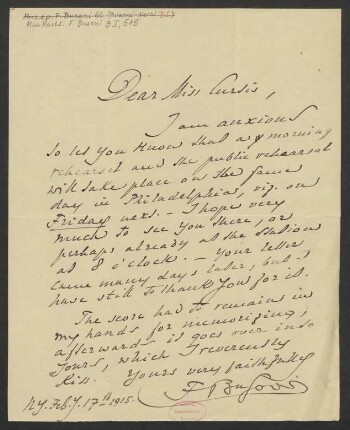 Mus. ep. F. Busoni
Mus. Nachl. F. Busoni B I, 515
Dear Miss Curtis,
I am anxious
to let you know that a morning
rehearsal and the public rehearsal
will take place on the same
day in Philadelphia, viz. on
Friday next. – I hope very
much to see you there, or
perhaps already at the station
at 8 o'clock. – Your letter
came many days later, but I
have still to thank you for it.
The score had to remain in
my hands for memorizing;
afterwards it goes over into
yours, which I reverently
kiss. Yours very faithfully
F Busoni
N.Y. Feb.y. 17th 1915.